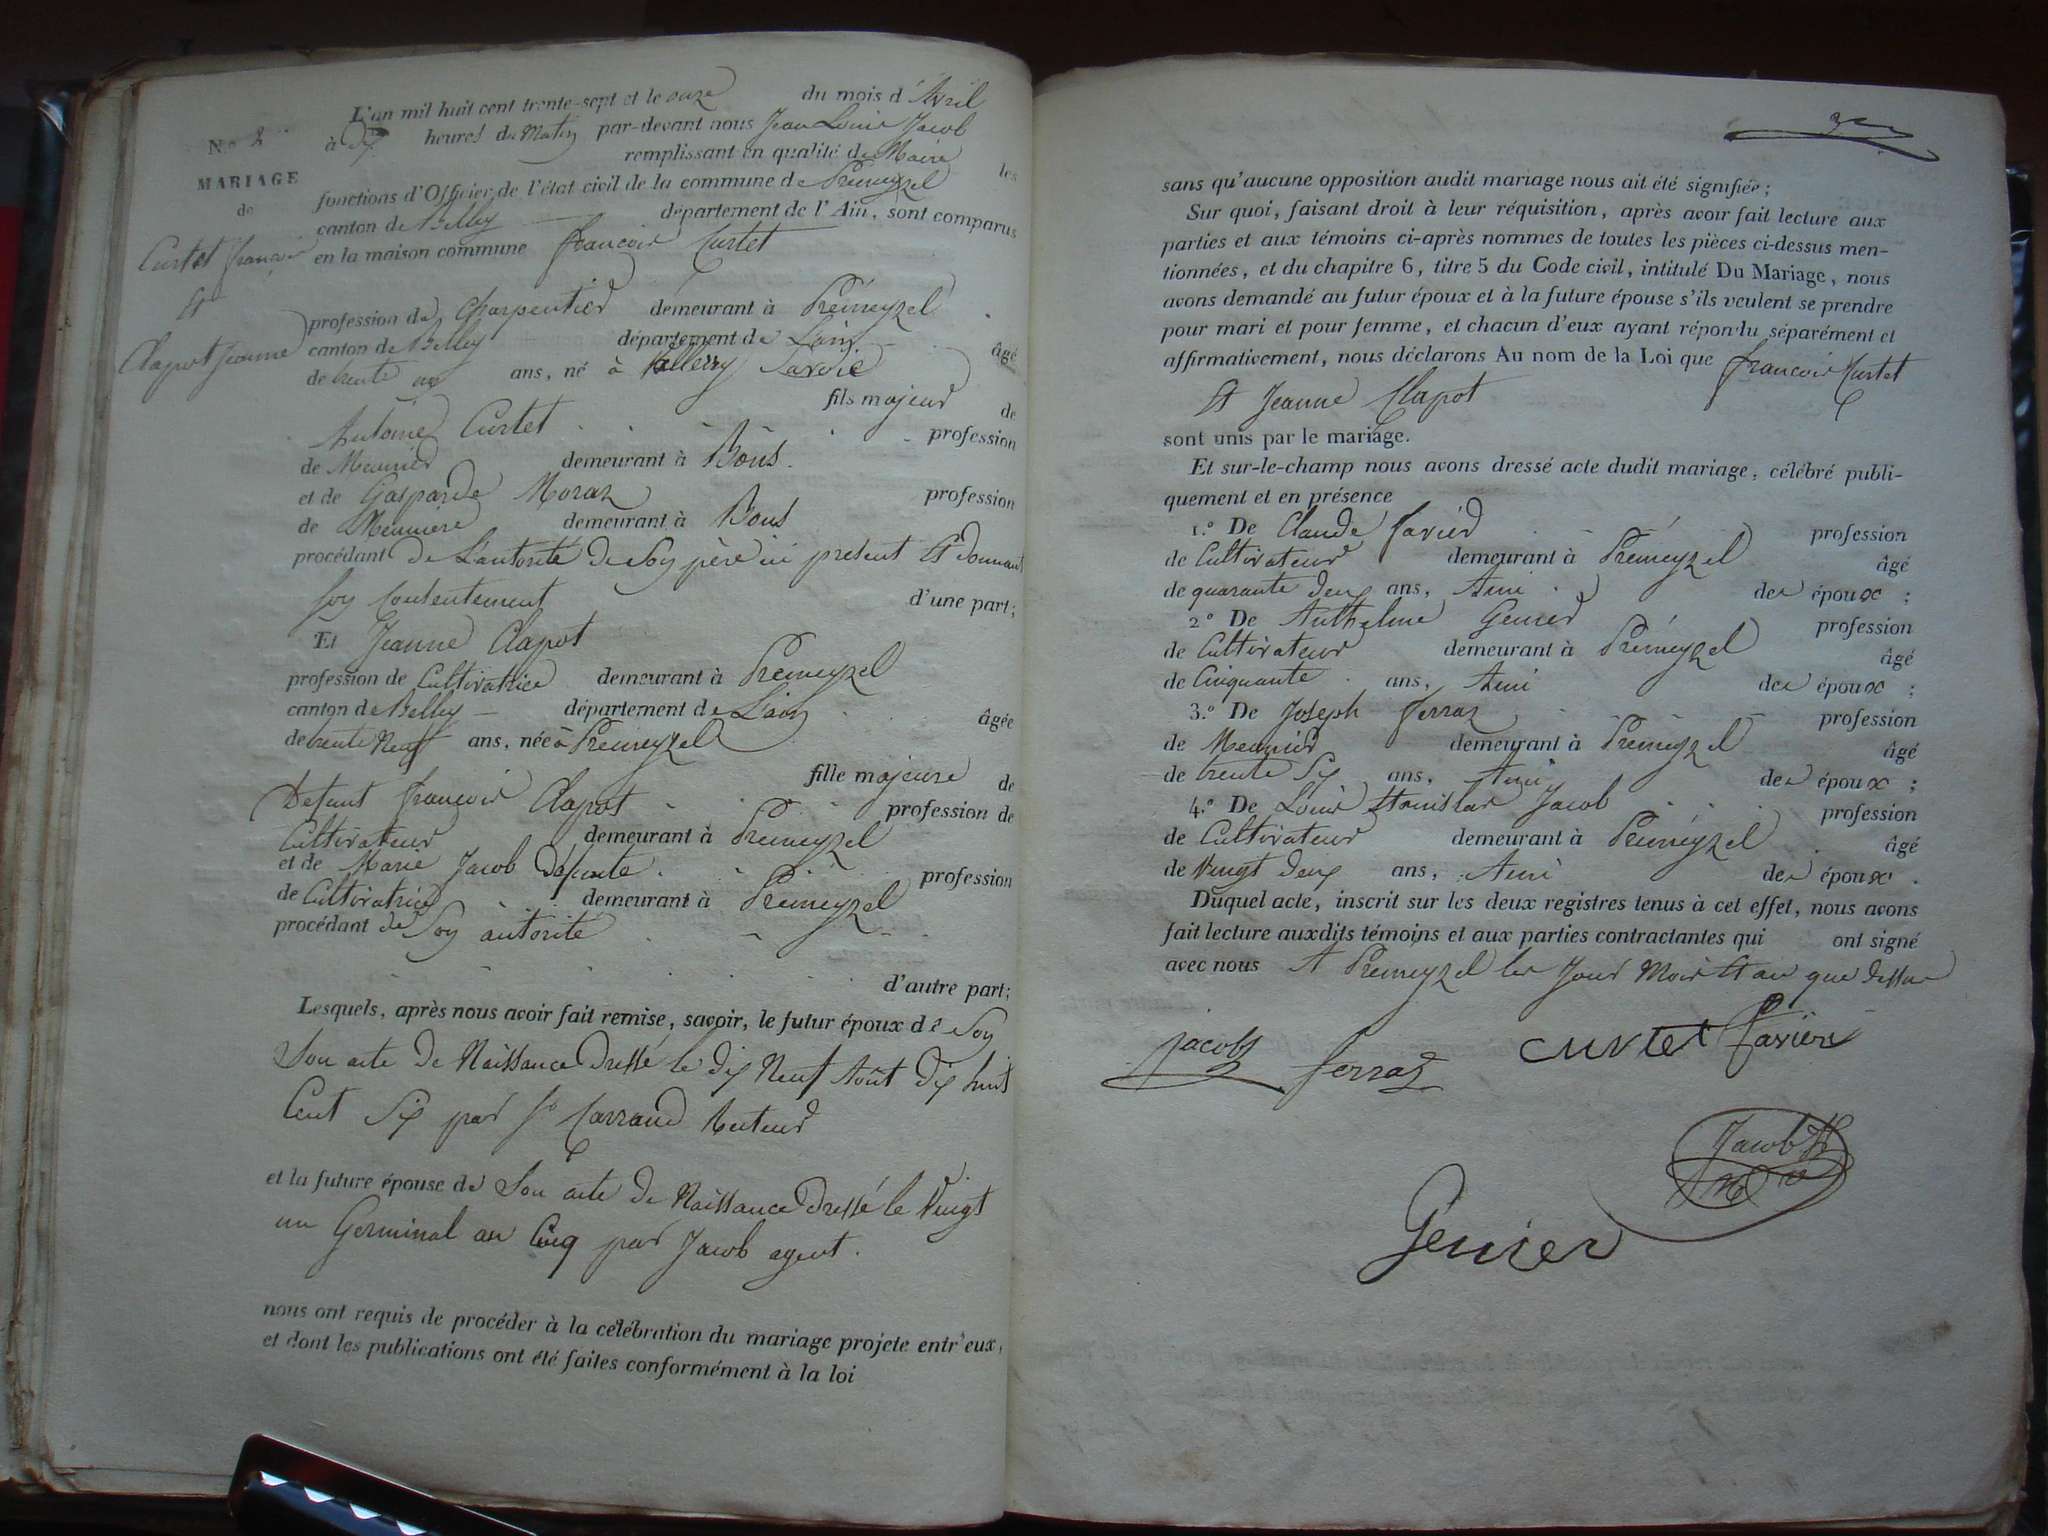 L'an mil huit cent trente-sept et le onze du mois d'Avril
à dix heures du Matin par-devant nous Jean Louis Jacob
remplissant en qualité de Maire les
fonctions d'Officier de l'état civil de la commune de Premeyzel
canton de Belley département de l'Ain, sont comparus
en la maison commune françois Curtet
No 2
MARIAGE
de
Curtet françois
Et
Clapot Jeanne
profession de Charpentier demeurant à Prémeyzel
canton de Belley département de Lain âgé
de trente ans, né à Savoie
fils majeur de
Antoine Curtet profession
de Meunier demeurant à Bons
et de Gasparde Moraz profession
de Meunière demeurant à Bons
procédant de Lautorité de Son père ici présent Et donnant
Son Consentement d'une part;
Et Jeanne Clapot
profession de Cultivatrice demeurant à Premeyzel
canton de Belley département de Lain âgée
de trente Neuf ans, née à Premeyzel
fille majeure de
Defunt françois Clapot profession de
Cultivateur demeurant à Premeyzel
et de Marie Jacob Défunte profession
de Cultivatrice demeurant à Premeyzel
procédant de Son autorité
d'autre part;
Lesquels, après nous avoir fait remise, savoir, le futur époux de Son
Son acte de Naissance Dressé le dix Neuf Août dix huit
Cent Six par Carrand Recteur
et la future épouse de Son acte de Naissance Dressé le Vingt
un Germinal an Cinq par Jacob agent.
nous ont requis de procéder à la célébration du mariage projeté entr'eux,
et dont les publications ont été faites conformément à la loi
sans qu'aucune opposition audit mariage nous ait été signifiée;
Sur quoi, faisant droit à leur réquisition, après avoir fait lecture aux
parties et aux témoins ci-après nommés de toutes les pièces ci-dessus men-
tionnées, et du chapitre 6, titre 5 du Code civil, intitulé Du Mariage, nous
avons demandé au futur époux et à la future épouse s'ils veulent se prendre
pour mari et pour femme, et chacun d'eux ayant répondu séparément et
affirmativement, nous déclarons Au nom de la Loi que françois Curtet
Et Jeanne Clapot
sont unis par le mariage.
Et sur-le-champ nous avons dressé acte dudit mariage, célébré publi-
quement et en présence
1.º De Claude favier profession
de Cultivateur demeurant à Prémeyzel âgé
de quarante deux ans, Ami des époux ;
2º De Anthelme Genier profession
de Cultivateur demeurant à Prémeyzel âgé
de Cinquante ans, Ami des époux ;
3.º De Joseph ferraz profession
de Meunier demeurant à Prémeyzel âgé
de trente Six ans, Ami des époux ;
4.º De Louis Stanislas Jacob profession
de Cultivateur demeurant à Prémeyzel âgé
de Vingt deux ans, Ami des époux .
Duquel acte, inscrit sur les deux registres tenus à cet effet, nous avons
fait lecture auxdits témoins et aux parties contractantes qui ont signé
avec nous A Premeyzel les Jour Mois Et an que dessus
jacob ferraz curtet favier
Jacob
Genier